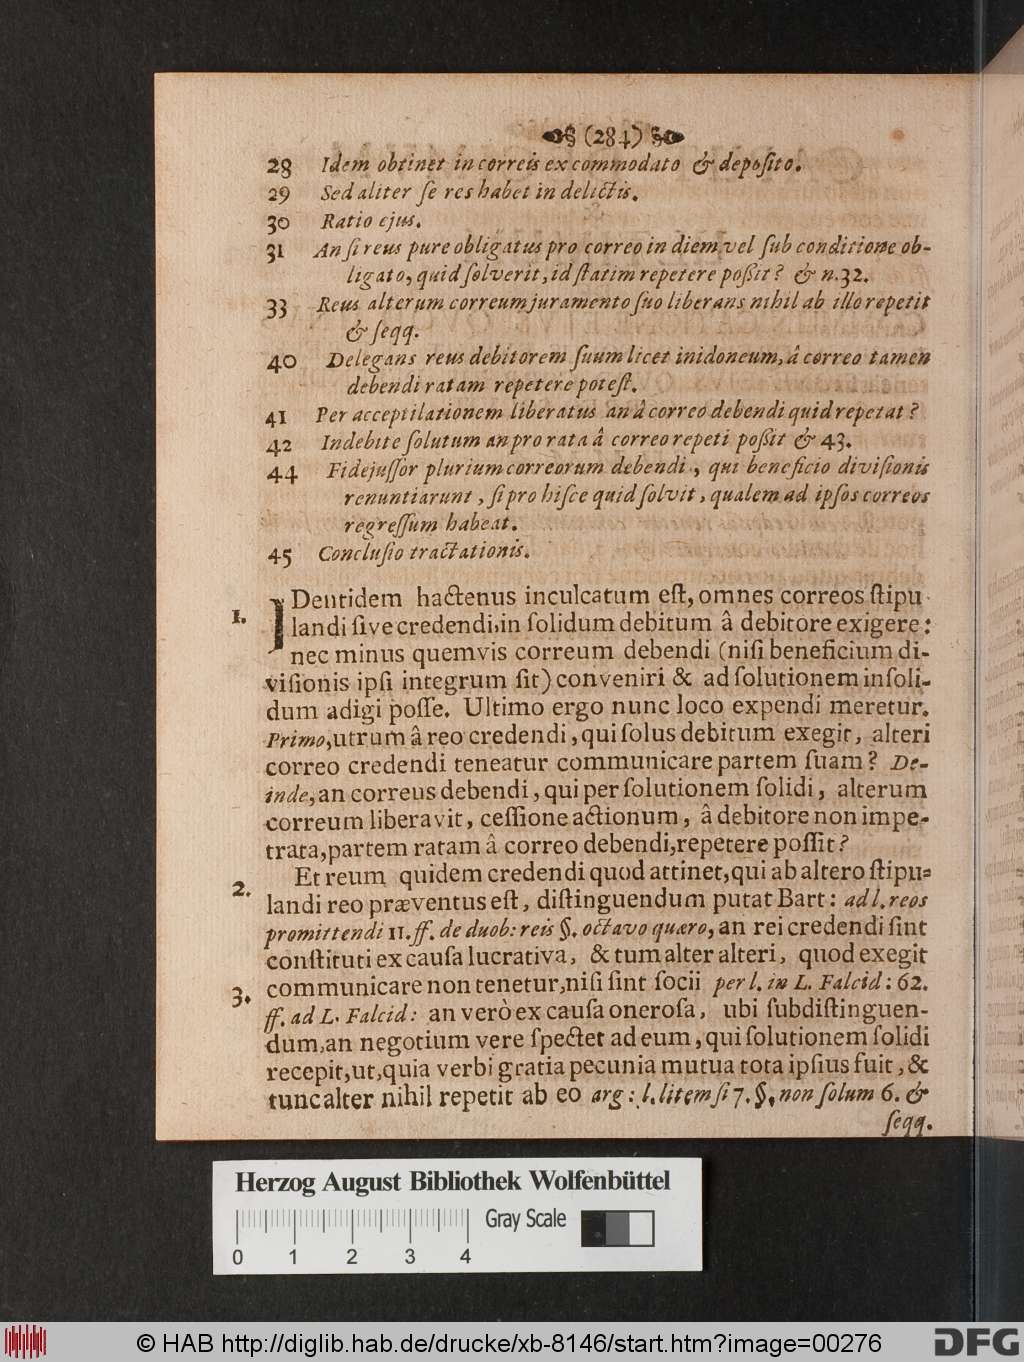 (284)
28 Idem obtinet in correis ex commodato & deposito.
29 Sed aliter se res habet in delictis.
30 Ratio ejus.
31 An si reus pure obligatus pro correo in diem, vel sub conditione ob-
ligato, quid solverit, id statim repetere possit? & n. 32.
33 Reus alterum correum juramento suo liberans nihil ab illo repetit
& seqq.
40 Delegans reus debitorem suum licet inidoneum, â correo tamen
debendi ratam repetere potest.
41 Per acceptilationem liberatus an â correo debendi quid repetat?
42 Indebite solutum an pro rata â correo repeti possit & 43.
44 Fidejussor plurium correorum debendi, qui beneficio divisionis
renuntiarunt, si pro hisce quid solvit, qualem ad ipsos correos
regressum habeat.
45 Conclusio tractationis.
1. IDentidem hactenus inculcatum est, omnes correos stipu
landi sive credendi, in solidum debitum â debitore exigere:
nec minus quemvis correum debendi (nisi beneficium di-
visionis ipsi integrum sit) conveniri & ad solutionem insoli-
dum adigi posse. Ultimo ergo nunc loco expendi meretur.
Primo, utrum â reo credendi, qui solus debitum exegit, alteri
correo credendi teneatur communicare partem suam? De-
inde, an correus debendi, qui per solutionem solidi, alterum
correum liberavit, cessione actionum, â debitore non impe-
trata, partem ratam â correo debendi, repetere possit?
2. Et reum quidem credendi quod attinet, qui ab altero stipu-
landi reo præventus est, distinguendum putat Bart: ad l. reos
promittendi 11. ff. de duob: reis §. octavo quæro, an rei credendi sint
constituti ex causa lucrativa, & tum alter alteri, quod exegit
communicare non tenetur, nisi sint socii per l. in L. Falcid: 62.
3. ff. ad L. Falcid: an verò ex causa onerosa, ubi subdistinguen-
dum, an negotium vere spectet ad eum, qui solutionem solidi
recepit, ut, quia verbi gratia pecunia mutua tota ipsius fuit, &
tunc alter nihil repetit ab eo arg: l. litem si 7. §. non solum 6. &
seqq.
Herzog August Bibliothek Wolfenbüttel
Gray Scale
0 1 2 3 4
© HAB http://diglib.hab.de/drucke/xb-8146/start.htm?image=00276
DFG